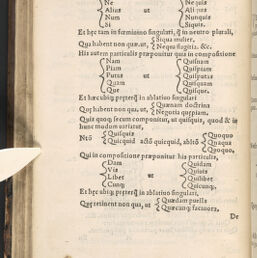 Ne Nequis
Alius ut Aliquis
Num Nunquis
Si Siquis.
Et hęc tam in fœminino singulari, ą in neutro plurali,
Qui habent non quæ, ut, Siqua mulier.
Nequa flagitia. &c.
His autem particulis præponitur quis in compositione
Nam Quisnam
Piam Quispiam
Putas ut Quisputas
Quam Quisquam
Que Quisque.
Et hæc ubiq; pręterq; in ablativo singulari
Quæ habent non qua, ut, Quænam doctrina
Negotia quępiam.
Quis quoq; secum componitur, ut quisquis, quod & in
hunc modum variatur,
Ntō Quisquis
Quicquid actō quicquid, abltō Quoquo
Quaqua
Quoquo,
Qui in compositione præponitur his particulis,
Dam Quidam
Vis ut Quivis
Libet Quilibet
Cunq; Quicunq;
Et hęc ubiq; pręterq; in ablativo singulari,
Quę retinent non qua, ut Quædam puella
Quæcunq; facinora,
De